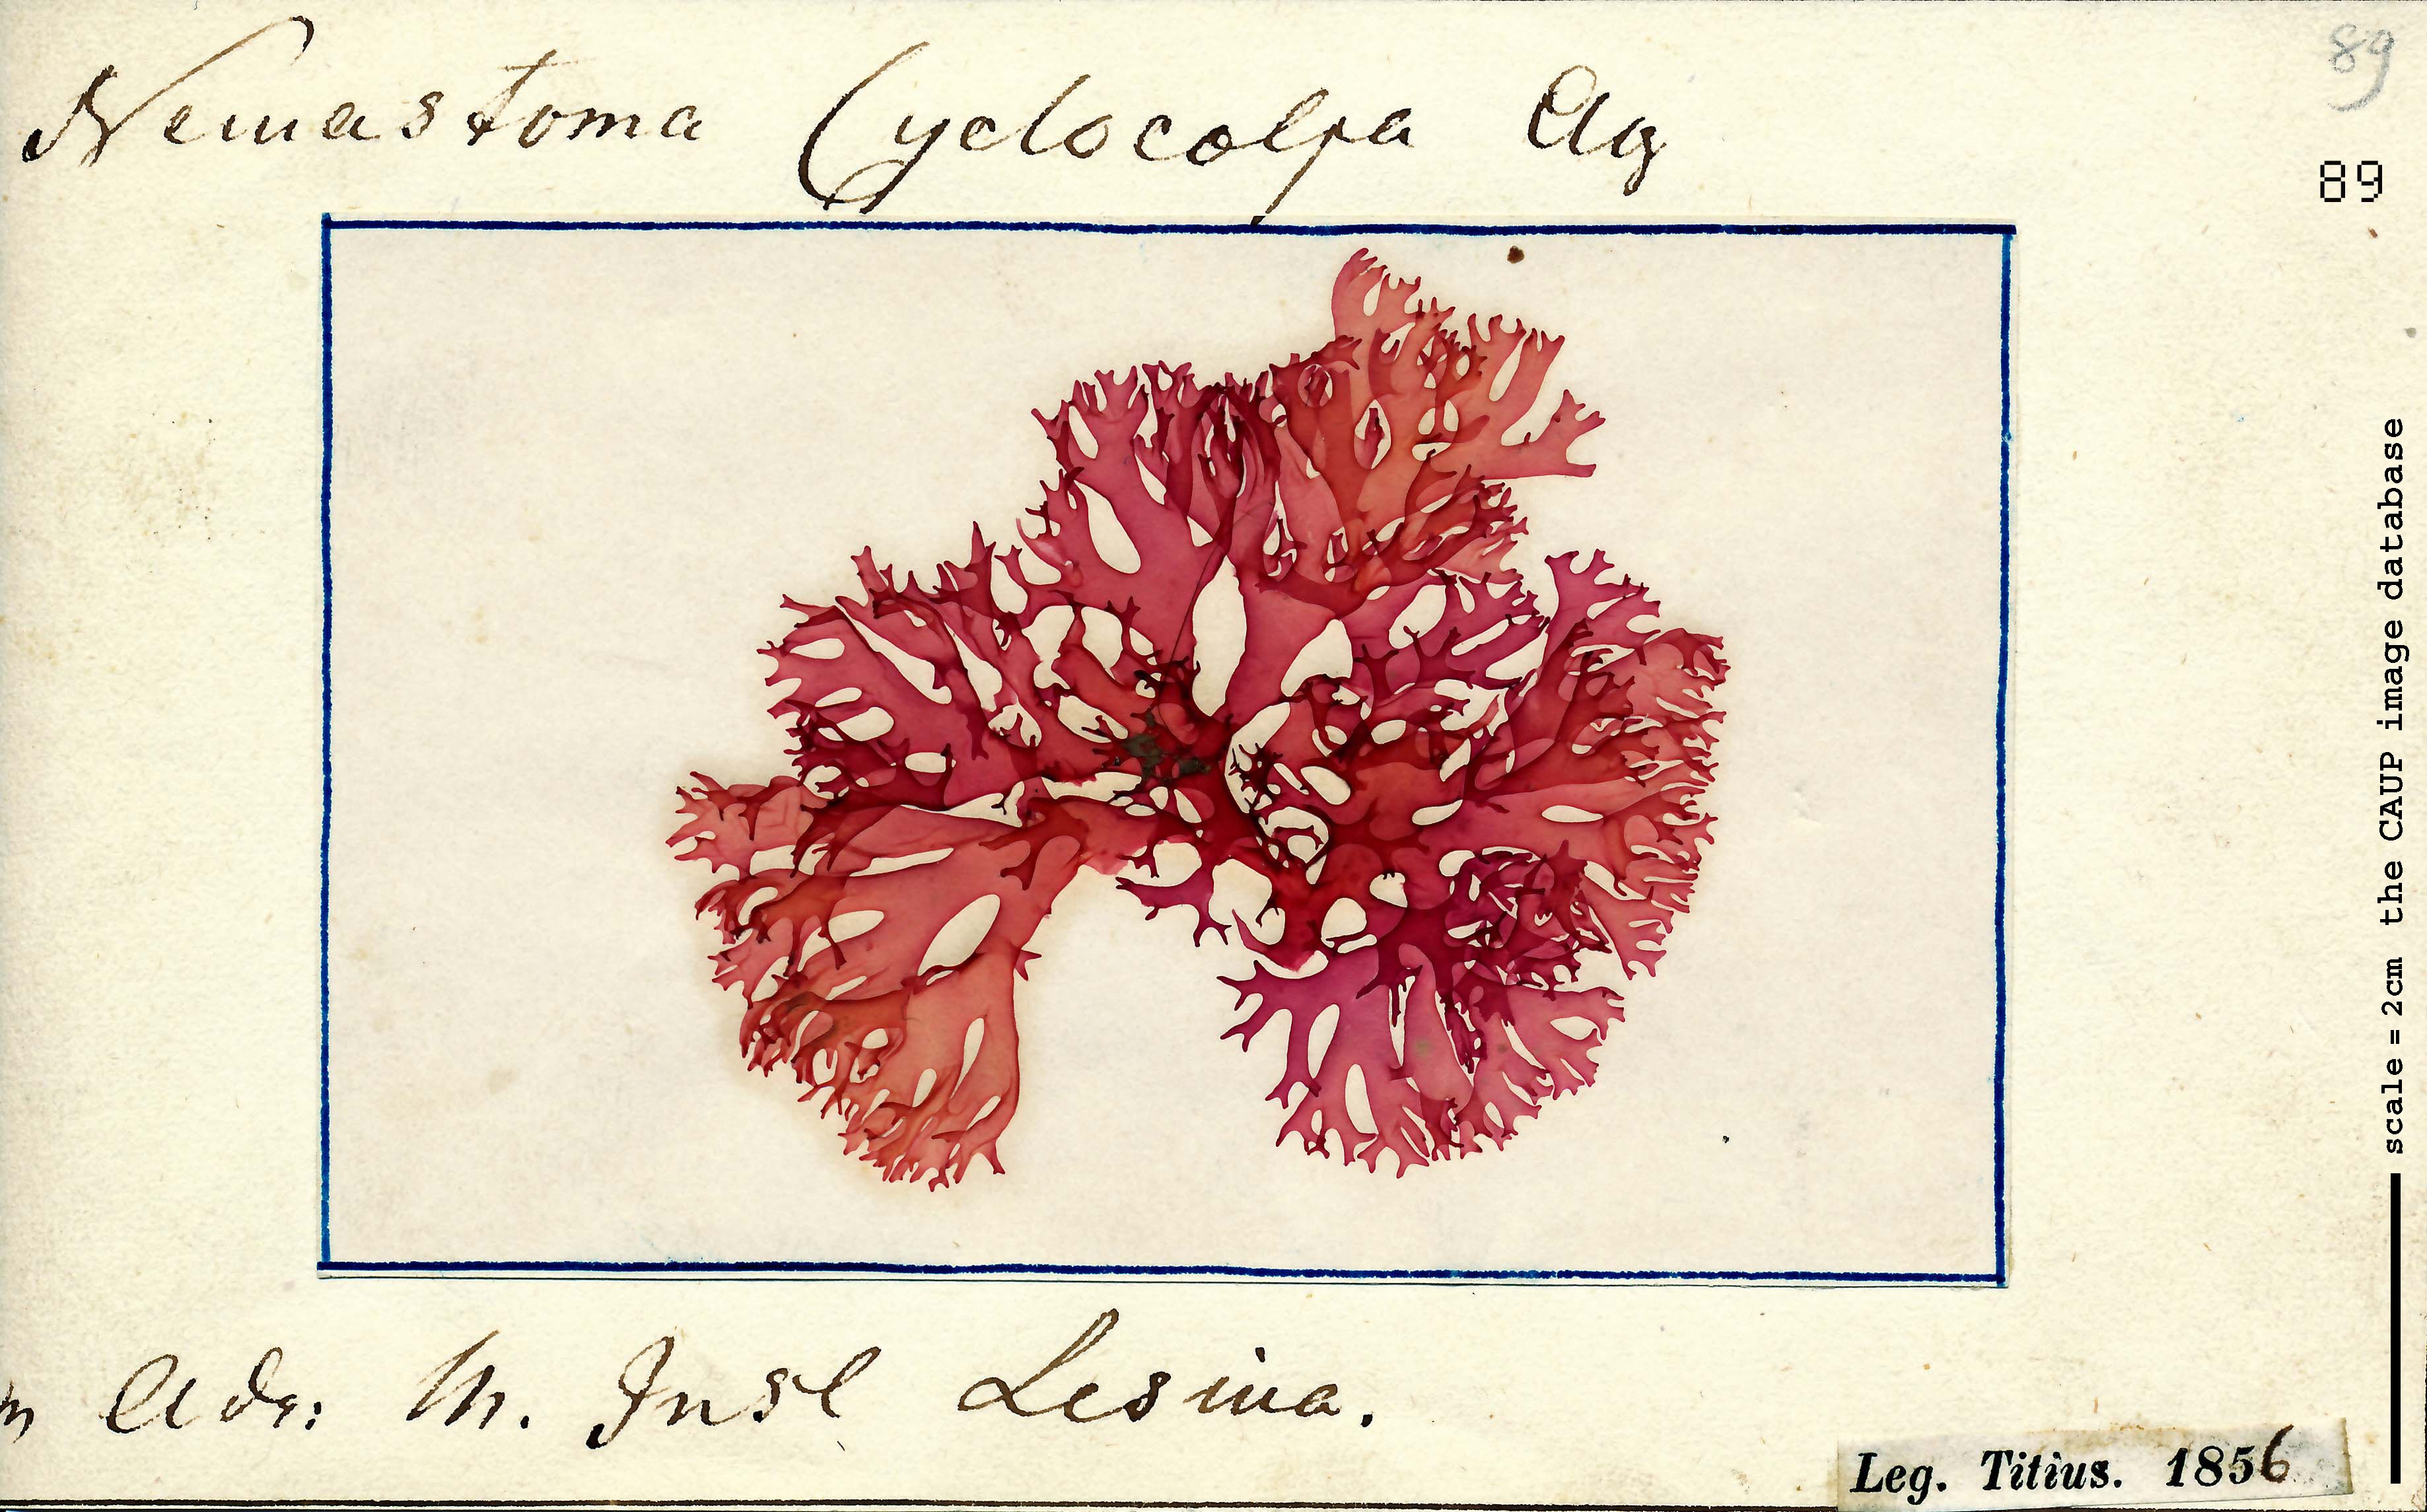 89
Nemastoma Cyclocolpa Ag
89
scale = 2cm the CAUP image database
Adr: M. Insl Lesina.
Leg. Titius. 1856